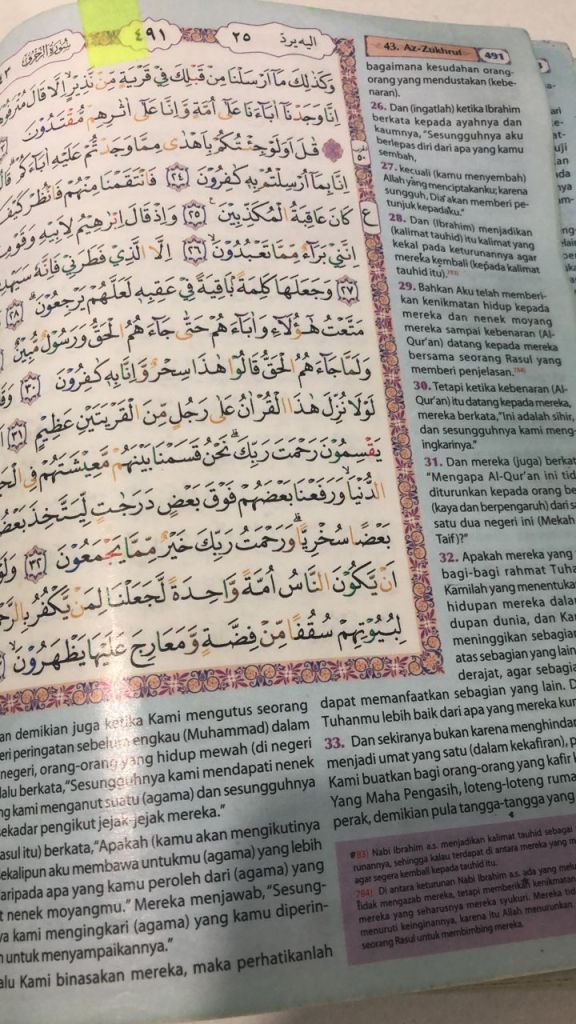 سورة الزخرف
٤٩١
اليه يرد ٢٥
43. Az-Zukhruf 491
وَكَذٰلِكَ مَآ اَرْسَلْنَا مِنْ قَبْلِكَ فِيْ قَرْيَةٍ مِّنْ نَّذِيْرٍ اِلَّا قَالَ
اِنَّا وَجَدْنَآ اٰبَاۤءَنَا عَلٰٓى اُمَّةٍ وَّاِنَّا عَلٰٓى اٰثٰرِهِمْ مُّقْتَدُوْنَ
قٰلَ اَوَلَوْ جِئْتُكُمْ بِاَهْدٰى مِمَّا وَجَدْتُّمْ عَلَيْهِ اٰبَاۤءَكُمْ
اِنَّا بِمَآ اُرْسِلْتُمْ بِهٖ كٰفِرُوْنَ ٢٤ فَانْتَقَمْنَا مِنْهُمْ فَانْظُرْ كَيْفَ
كَانَ عَاقِبَةُ الْمُكَذِّبِيْنَ ٢٥ وَاِذْ قَالَ اِبْرٰهِيْمُ لِاَبِيْهِ وَقَوْمِهٖٓ
اِنَّنِيْ بَرَاۤءٌ مِّمَّا تَعْبُدُوْنَ ٢٦ اِلَّا الَّذِيْ فَطَرَنِيْ فَاِنَّهٗ
٢٧ وَجَعَلَهَا كَلِمَةً بَاقِيَةً فِيْ عَقِبِهٖ لَعَلَّهُمْ يَرْجِعُوْنَ ٢٨
مَتَّعْتُ هٰٓؤُلَاۤءِ وَاٰبَاۤءَهُمْ حَتّٰى جَاۤءَهُمُ الْحَقُّ وَرَسُوْلٌ مُّبِيْنٌ
وَلَمَّا جَاۤءَهُمُ الْحَقُّ قَالُوْا هٰذَا سِحْرٌ وَّاِنَّا بِهٖ كٰفِرُوْنَ ٣٠
لَوْلَا نُزِّلَ هٰذَا الْقُرْاٰنُ عَلٰى رَجُلٍ مِّنَ الْقَرْيَتَيْنِ عَظِيْمٍ ٣١
يَقْسِمُوْنَ رَحْمَتَ رَبِّكَ نَحْنُ قَسَمْنَا بَيْنَهُمْ مَّعِيْشَتَهُمْ فِى
الدُّنْيَا وَرَفَعْنَا بَعْضَهُمْ فَوْقَ بَعْضٍ دَرَجٰتٍ لِّيَتَّخِذَ
بَعْضًا سُخْرِيًّا وَرَحْمَتُ رَبِّكَ خَيْرٌ مِّمَّا يَجْمَعُوْنَ ٣٢
اَنْ يَّكُوْنَ النَّاسُ اُمَّةً وَّاحِدَةً لَّجَعَلْنَا لِمَنْ يَّكْفُرُ
لِبُيُوْتِهِمْ سُقُفًا مِّنْ فِضَّةٍ وَّمَعَارِجَ عَلَيْهَا يَظْهَرُوْنَ
bagaimana kesudahan orang-
orang yang mendustakan (kebe-
naran).
26. Dan (ingatlah) ketika Ibrahim
berkata kepada ayahnya dan
kaumnya, "Sesungguhnya aku
berlepas diri dari apa yang kamu
sembah,
27. kecuali (kamu menyembah)
Allah yang menciptakanku; karena
sungguh, Dia akan memberi pe-
tunjuk kepadaku."
28. Dan (Ibrahim) menjadikan
(kalimat tauhid) itu kalimat yang
kekal pada keturunannya agar
mereka kembali (kepada kalimat
tauhid itu).
29. Bahkan Aku telah memberi-
kan kenikmatan hidup kepada
mereka dan nenek moyang
mereka sampai kebenaran (Al-
Qur'an) datang kepada mereka
bersama seorang Rasul yang
memberi penjelasan.
30. Tetapi ketika kebenaran (Al-
Qur'an) itu datang kepada mereka,
mereka berkata, "Ini adalah sihir,
dan sesungguhnya kami meng-
ingkarinya."
31. Dan mereka (juga) berkat
"Mengapa Al-Qur'an ini tid
diturunkan kepada orang be
(kaya dan berpengaruh) dari sa
satu dua negeri ini (Mekah
Taif)?"
32. Apakah mereka yang
bagi-bagi rahmat Tuha
Kamilah yang menentukan
hidupan mereka dalam
dupan dunia, dan Kam
meninggikan sebagian
atas sebagian yang lain
derajat, agar sebagian
dapat memanfaatkan sebagian yang lain. D
Tuhanmu lebih baik dari apa yang mereka kum
33. Dan sekiranya bukan karena menghindar
menjadi umat yang satu (dalam kekafiran), p
Kami buatkan bagi orang-orang yang kafir k
Yang Maha Pengasih, loteng-loteng rumah
perak, demikian pula tangga-tangga yang
an demikian juga ketika Kami mengutus seorang
eri peringatan sebelum engkau (Muhammad) dalam
negeri, orang-orang yang hidup mewah (di negeri
alu berkata, "Sesungguhnya kami mendapati nenek
ng kami menganut suatu (agama) dan sesungguhnya
sekadar pengikut jejak-jejak mereka."
asul itu) berkata, "Apakah (kamu akan mengikutinya
sekalipun aku membawa untukmu (agama) yang lebih
daripada apa yang kamu peroleh dari (agama) yang
t nenek moyangmu." Mereka menjawab, "Sesung-
ya kami mengingkari (agama) yang kamu diperin-
n untuk menyampaikannya."
alu Kami binasakan mereka, maka perhatikanlah
Nabi Ibrahim a.s. menjadikan kalimat tauhid sebagai
runannya, sehingga kalau terdapat di antara mereka yang m
agar segera kembali kepada tauhid itu.
Di antara keturunan Nabi Ibrahim a.s. ada yang
Tidak mengazab mereka, tetapi memberikan kenikmatan
mereka yang seharusnya mereka syukuri. Mereka
menuruti keinginannya, karena itu Allah menurunkan
seorang Rasul untuk membimbing mereka.